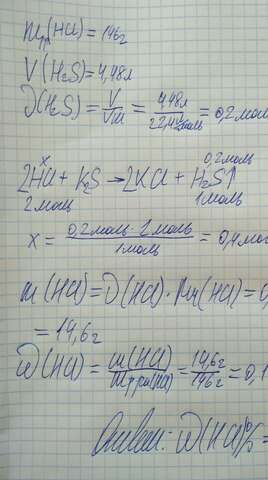 mр-р(HCl) = 146г
V(H₂S) = 4,48л
ν(H₂S) = V/Vm = 4,48л/22,4л/моль = 0,2мол
x 0,2моль
2HCl + K₂S → 2KCl + H₂S↑
2моль 1моль
x = 0,2моль · 2моль/1моль = 0,4мол
m(HCl) = ν(HCl) · Mr(HCl) = 0,
= 14,6г
ω(HCl) = m(HCl)/mр-ра(HCl) = 14,6г/146г = 0,1
Ответ: ω(HCl)% =